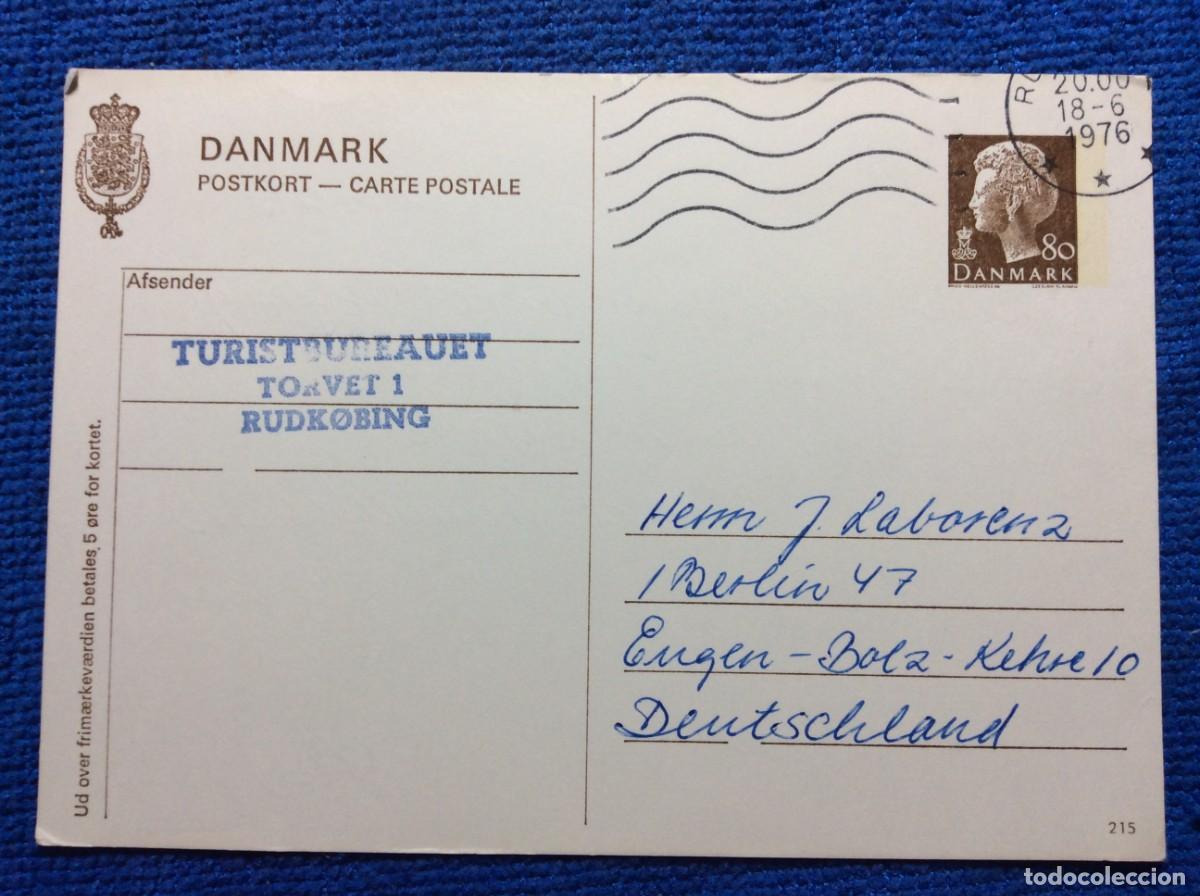 DANMARK
POSTKORT — CARTE POSTALE
20.00
18-6
1976
80
DANMARK
Afsender
TURISTBUREAUET
TORVET 1
RUDKØBING
Ud over frimærkeværdien betales 5 øre for kortet.
Herrn J. Laborenz
1 Berlin 47
Eugen-Bolz-Kehre 10
Deutschland
215
todocoleccion